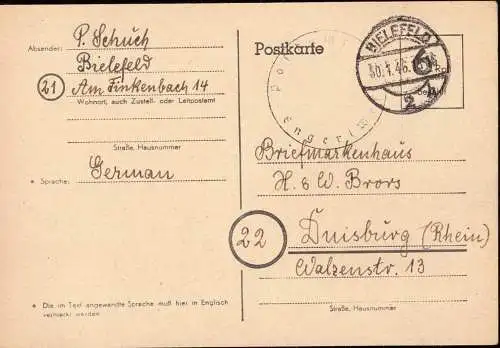 Absender: P. Schuch
Bielefeld
21 Am Finkenbach 14
Wohnort, auch Zustell- oder Leitpostamt
Straße, Hausnummer
* Sprache: German
* Die im Text angewandte Sprache muß hier in Englisch
vermerkt werden
Postkarte
BIELEFELD
30.1.46.
6
Briefmarkenhaus
H. & W. Brors
22 Duisburg (Rhein)
Walzenstr. 13
Straße, Hausnummer